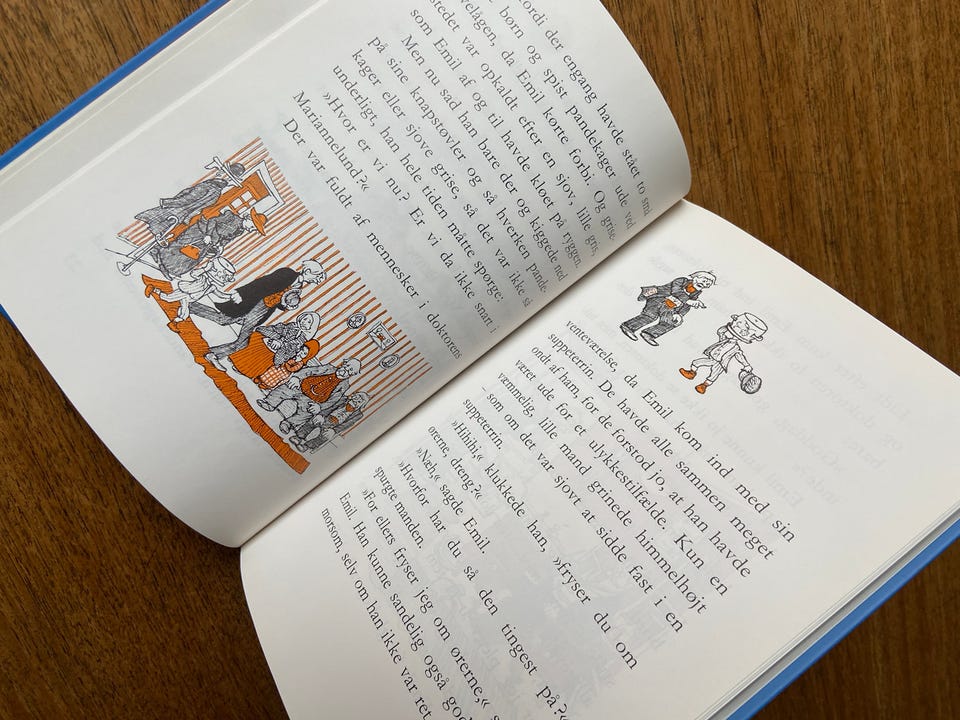 der engang havde stået to små
børn og spist pandekager ude ved
da Emil kørte forbi. Og grise-
stedet var opkaldt efter en sjov, lille gris,
som Emil af og til havde kløet på ryggen.
Men nu sad han bare der og kiggede ned
på sine knapstøvler og så hverken pande-
kager eller sjove grise, så det var ikke så
underligt, han hele tiden måtte spørge:
»Hvor er vi nu? Er vi da ikke snart i
Mariannelund?«
Der var fuldt af mennesker i doktorens
venteværelse, da Emil kom ind med sin
suppeterrin. De havde alle sammen meget
ondt af ham, for de forstod jo, at han havde
været ude for et ulykkestilfælde. Kun en
væmmelig, lille mand grinede himmelhøjt
som om det var sjovt at sidde fast i en
suppeterrin.
»Hihihi,« klukkede han, »fryser du om
ørerne, dreng?«
»Næh,« sagde Emil.
»Hvorfor har du så den tingest på?«
spurgte manden.
»For ellers fryser jeg om ørerne,«
Emil. Han kunne sandelig også
morsom, selv om han ikke var